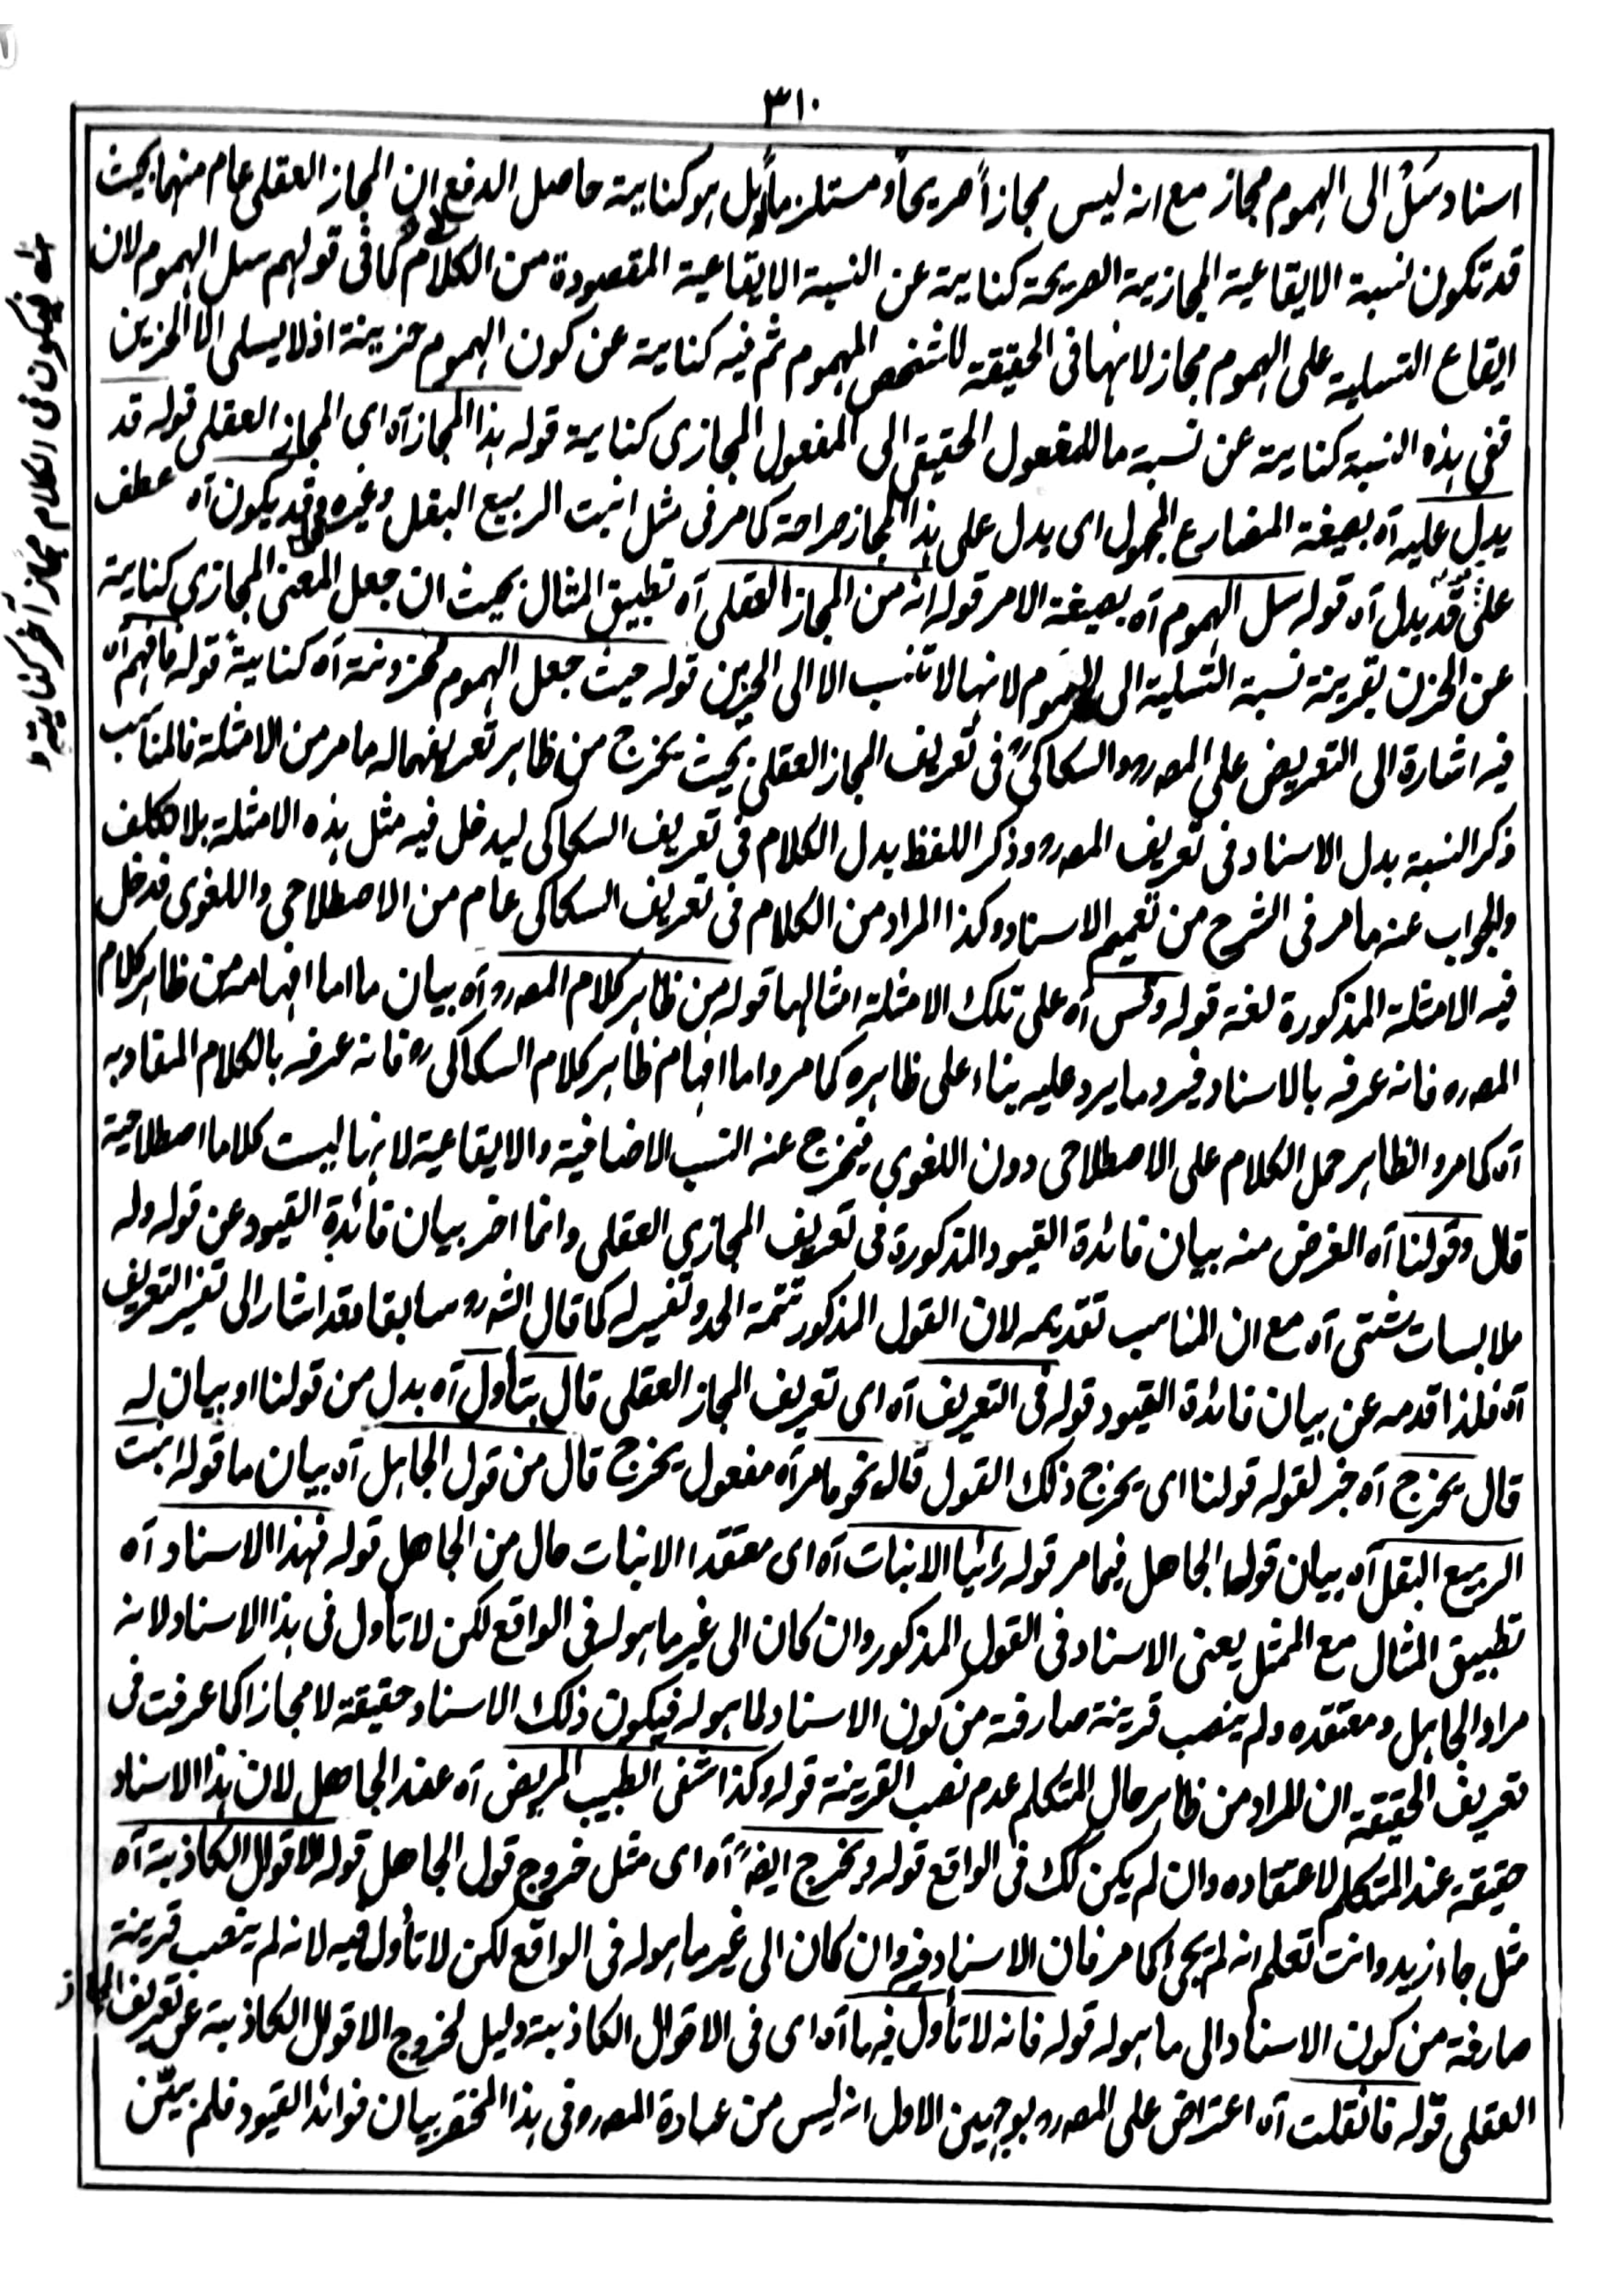 ٣١٠
اسناد سَلْ الى الهموم مجاز مع انه ليس مجازاً صريحاً و مستلزماً بل هو كناية حاصل الدفع ان المجاز العقلى عام منهما بحيث
قد تكون نسبة الايقاعية المجازية الصريحة كناية عن النسبة الايقاعية المقصودة من الكلام كما فى قولهم سل الهموم لان
ايقاع التسلية على الهموم مجاز لانها فى الحقيقة للشخص المهموم ثم فيه كناية عن كون الهموم حزينة اذ لا يسلى الا الحزين
ففى هذه النسبة كناية عن نسبة ما للمفعول الحقيقى الى المفعول المجازى كناية قوله هذا المجاز آه اى المجاز العقلى قوله قد
يدل عليه آه بصيغة المضارع المجهول اى يدل على هذا المجاز صراحة كما مر فى مثل انبت الربيع البقل وغيره قد يكون آه عطف
على قد يدل آه قوله سل الهموم آه بصيغة الامر قوله انه من المجاز العقلى آه تطبيق المثال بحيث ان جعل المعنى المجازى كناية
عن الحزن بقرينة نسبة التسلية الى الهموم لانها لا تنسب الا الى الحزين قوله حيث جعل الهموم محزونة آه كناية قوله فافهم آه
فيه اشارة الى التعريض على المصرو والسكاكى فى تعريف المجاز العقلى بحيث يخرج من ظاهر تعريفهما له ما مر من الامثلة فالمناسب
ذكر النسبة بدل الاسناد فى تعريف المصرو وذكر اللفظ بدل الكلام فى تعريف السكاكى ليدخل فيه مثل هذه الامثلة بلا تكلف
والجواب عنه ما مر فى الشرح من تعميم الاسناد وكذا المراد من الكلام فى تعريف السكاكى عام من الاصطلاحى واللغوى فدخل
فيه الامثلة المذكورة لغة قوله وقس آه على تلك الامثلة امثالها قوله من ظاهر كلام المصرو آه بيان ما اما افهامه من ظاهر كلام
المصره فانه عرفه بالاسناد فيرد ما يرد عليه بناء على ظاهره كما مر واما افهام ظاهر كلام السكاكى رو فانه عرفه بالكلام المفاد به
آه كما مر والظاهر حمل الكلام على الاصطلاحى دون اللغوى فيخرج عنه النسب الاضافية والايقاعية لانها ليست كلاما اصطلاحية
قال وقولنا آه الغرض منه بيان فائدة القيود المذكورة فى تعريف المجازى العقلى وانما اخر بيان فائدة القيود عن قوله وله
ملابسات شتى آه مع ان المناسب تقديمه لان القول المذكور تتمة الحد وتفسير له كما قال الشرو سابقا وقد اشار الى تفسير التعريف
آه فلذا قدمه عن بيان فائدة القيود قوله فى التعريف آه اى تعريف المجاز العقلى قال بتأول آه بدل من قولنا او بيان له
قال يخرج آه خبر لقوله قولنا اى يخرج ذلك القول قاله نحو ما مر آه مفعول يخرج قال من قول الجاهل آه بيان ما قوله انبت
الربيع البقل آه بيان قول الجاهل فيما مر قوله رائيا الانبات آه اى معتقدا الانبات حال من الجاهل قوله فهذا الاسناد آه
تطبيق المثال مع الممثل يعنى الاسناد فى القول المذكور وان كان الى غير ما هو له فى الواقع لكن لا تأول فى هذا الاسناد لانه
مراد الجاهل ومعتقده ولم ينصب قرينة صارفة من كون الاسناد لما هو له فيكون ذلك الاسناد حقيقة لا مجازا كما عرفت فى
تعريف الحقيقة ان المراد من ظاهر حال المتكلم عدم نصب القرينة قوله وكذا شفى الطبيب المريض آه عند الجاهل لان هذا الاسناد
حقيقة عند المتكلم لاعتقاده وان لم يكن كك فى الواقع قوله ويخرج ايضً آه اى مثل خروج قول الجاهل قوله الاقوال الكاذبة آه
مثل جاء زيد وانت تعلم انه لم يجئ كما مر فان الاسناد فيه وان كان الى غير ما هو له فى الواقع لكن لا تأول فيه لانه لم ينصب قرينة
صارفة من كون الاسناد الى ما هو له قوله فانه لا تأول فيها آه اى فى الاقوال الكاذبة دليل لخروج الاقوال الكاذبة عن تعريف المجاز
العقلى قوله فانقلت آه اعتراض على المصرو بوجهين الاول انه ليس من عبارة المصرو فى هذا المختصر بيان فوائد القيود فلم بيّن
فيكون فى الكلام مجاز آخر كناية